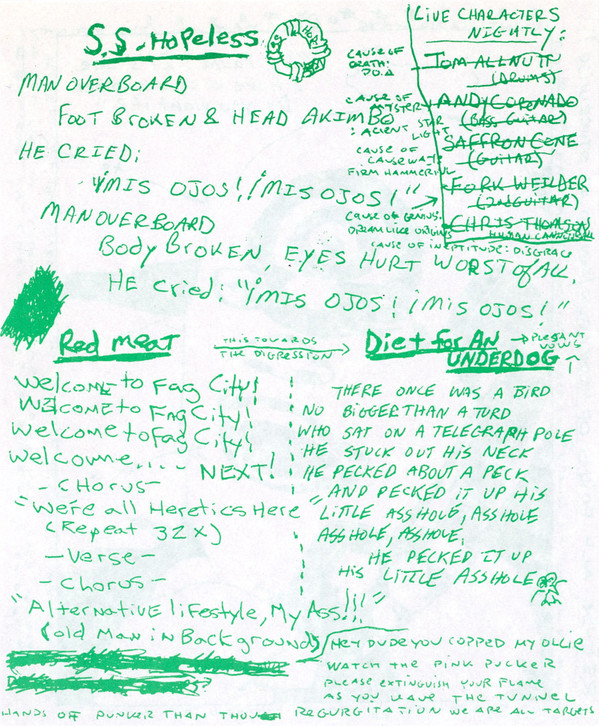 S.S. Hopeless
S.S. HOPE
MAN OVERBOARD
FOOT BROKEN & HEAD AKIMBO
HE CRIED:
"¡MIS OJOS! ¡MIS OJOS!"
MAN OVERBOARD
Body BROKEN, EYES HURT WORST of ALL.
HE Cried: "¡MIS OJOS! ¡Mis OJOS!"
LIVE CHARACTERS
NIGHTLY:
CAUSE OF
DEATH:
D.O.A
TOM ALLNUTT
(DRUMS)
CAUSE OF
MYSTERY
: ACIENT STAR
LIGHT
ANDY CORONADO
(BASS GUITAR)
SAFFRON CONE
(GUITAR)
CAUSE OF
CAUSEWAY:
FIRM HAMMERING
FORK WEILDER
(2ND GUITAR)
CAUSE OF GENIUS:
DREAM LIKE ORIGINS
CHRIS THOMSON
HUMAN CANNONBALL
CAUSE OF INEPTITUDE: DISGRACE
Red MEAT
THIS TOWARDS
THE DIGRESSION
Welcome to Fag City!
Welcome to Fag City!
Welcome to Fag City!
Welcome....
NEXT!
- CHORUS -
"We're all Heretics Here"
(Repeat 32X)
- Verse -
- Chorus -
"Alternative lifestyle, My Ass!!!"
(old Man in Background)
Diet for AN
UNDERDOG
PLEASANT
VOWS
THERE ONCE WAS A BIRD
NO BIGGER THAN A TURD
WHO SAT ON A TELEGRAPH POLE
HE STUCK OUT HIS NECK
HE PECKED ABOUT A PECK
AND PECKED IT UP HIS
LITTLE ASSHOLE, ASSHOLE
ASSHOLE, ASSHOLE.
HE PECKED IT UP
His LITTLE ASSHOLE
HEY DUDE YOU COPPED MY OLLIE
WATCH THE PINK PUCKER
PLEASE EXTINGUISH YOUR FLAME
AS YOU LEAVE THE TUNNEL
HANDS OFF PUNKER THAN THOU REGURGITATION WE ARE ALL TARGETS